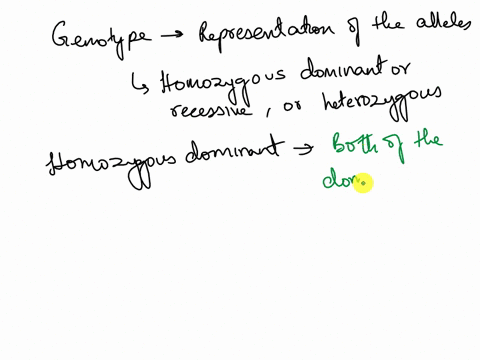 Genotype → Representation of the alleles
↳ Homozygous dominant or
recessive, or heterozygous
Homozygous dominant → Both of the
dom